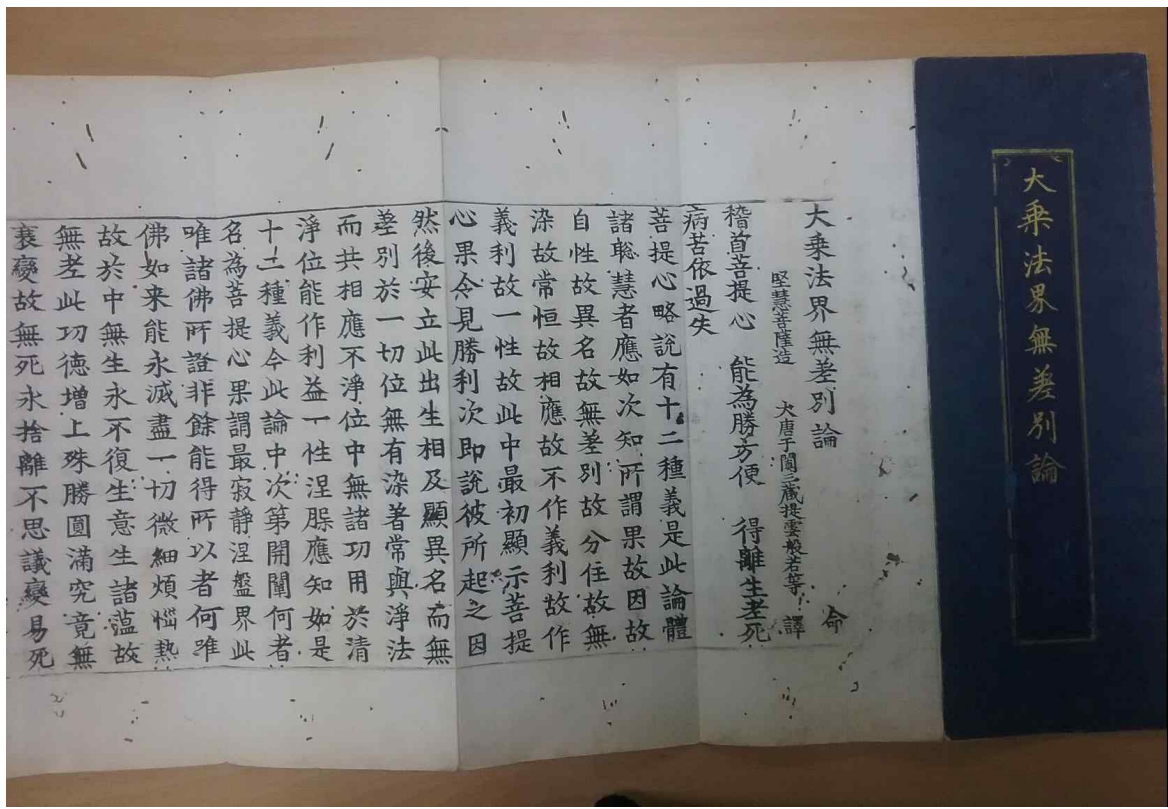 大乗法界無差別論
大乗法界無差別論
命
堅慧菩薩造 大唐于闐三蔵提雲般若等 譯
稽首菩提心 能為勝方便 得離生老死
病苦依過失
菩提心略說有十二種義是此論體
諸聰慧者應如次知所謂果故因故
自性故異名故無差別故分住故無
染故常恒故相應故不作義利故作
義利故一性故此中最初顯示菩提
心果令見勝利次即說彼所起之因
然後安立此出生相及顯異名而無
差別於一切位無有染著常與淨法
而共相應不淨位中無諸功用於清
淨位能作利益一性涅槃應知如是
十二種義今此論中次第開闡何者
名為菩提心果謂最寂靜涅盤界此
唯諸佛所證非餘能得所以者何唯
佛如来能永滅盡一切微細煩惱熱
故於中無生永不復生意生諸蘊故
無老此功德增上殊勝圓滿究竟無
衰變故無死永捨離不思議變易死